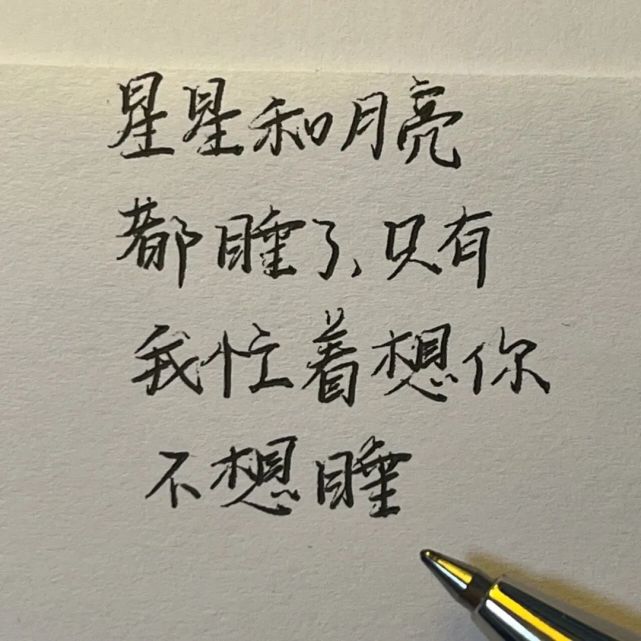 星星和月亮
都睡了,只有
我忙着想你
不想睡